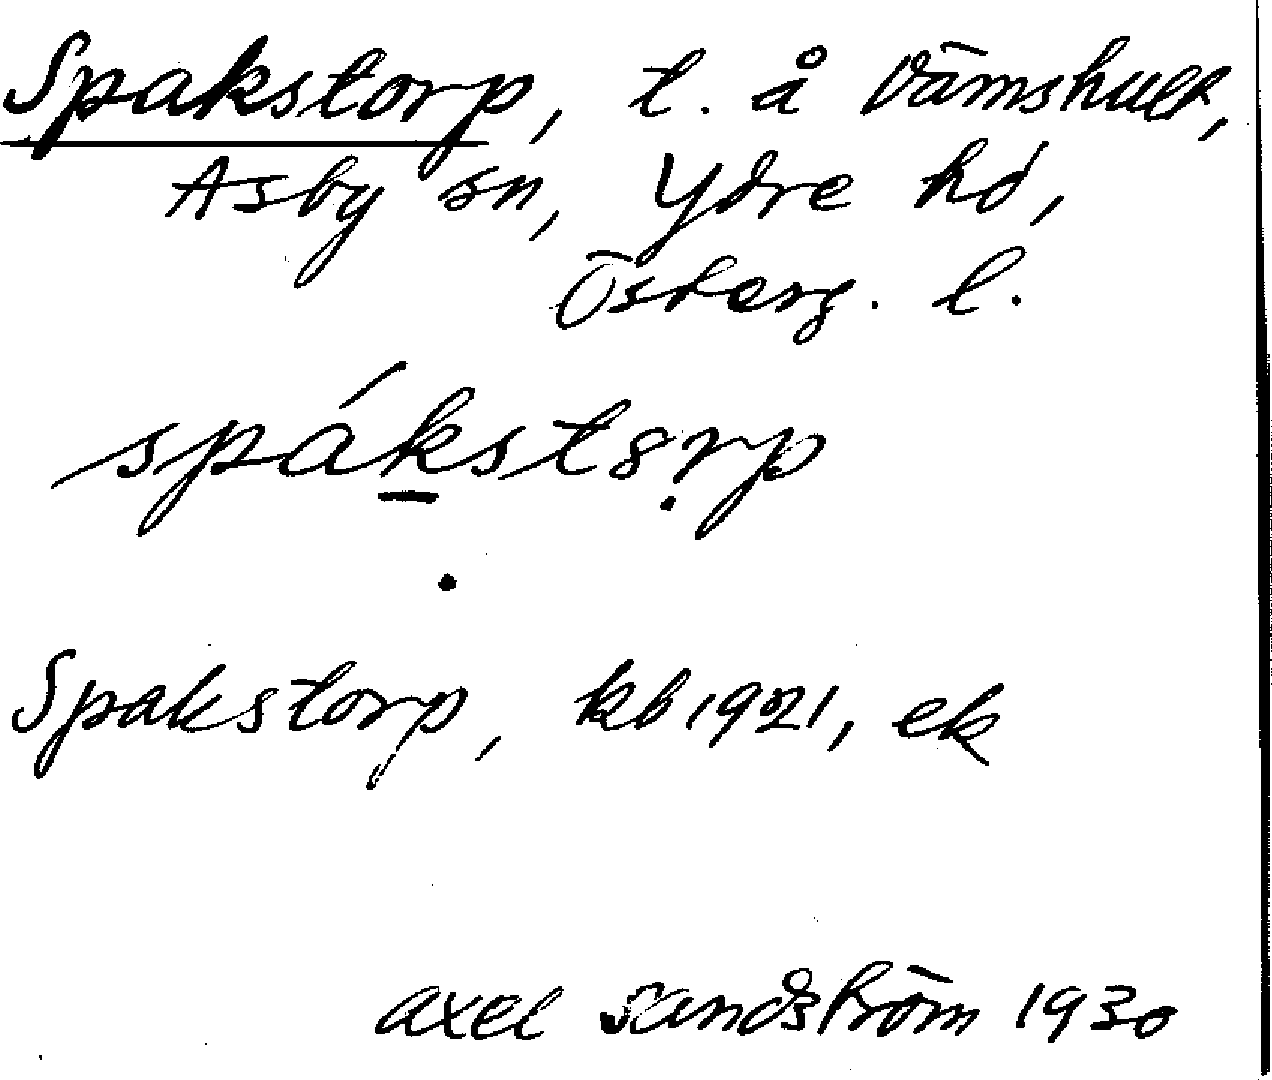 Spakstorp, t. å Vämshult,
Asby sn, Ydre hd,
Österg. l.
spákstorp
Spakstorp, kb 1921, ek
axel sandström 1930